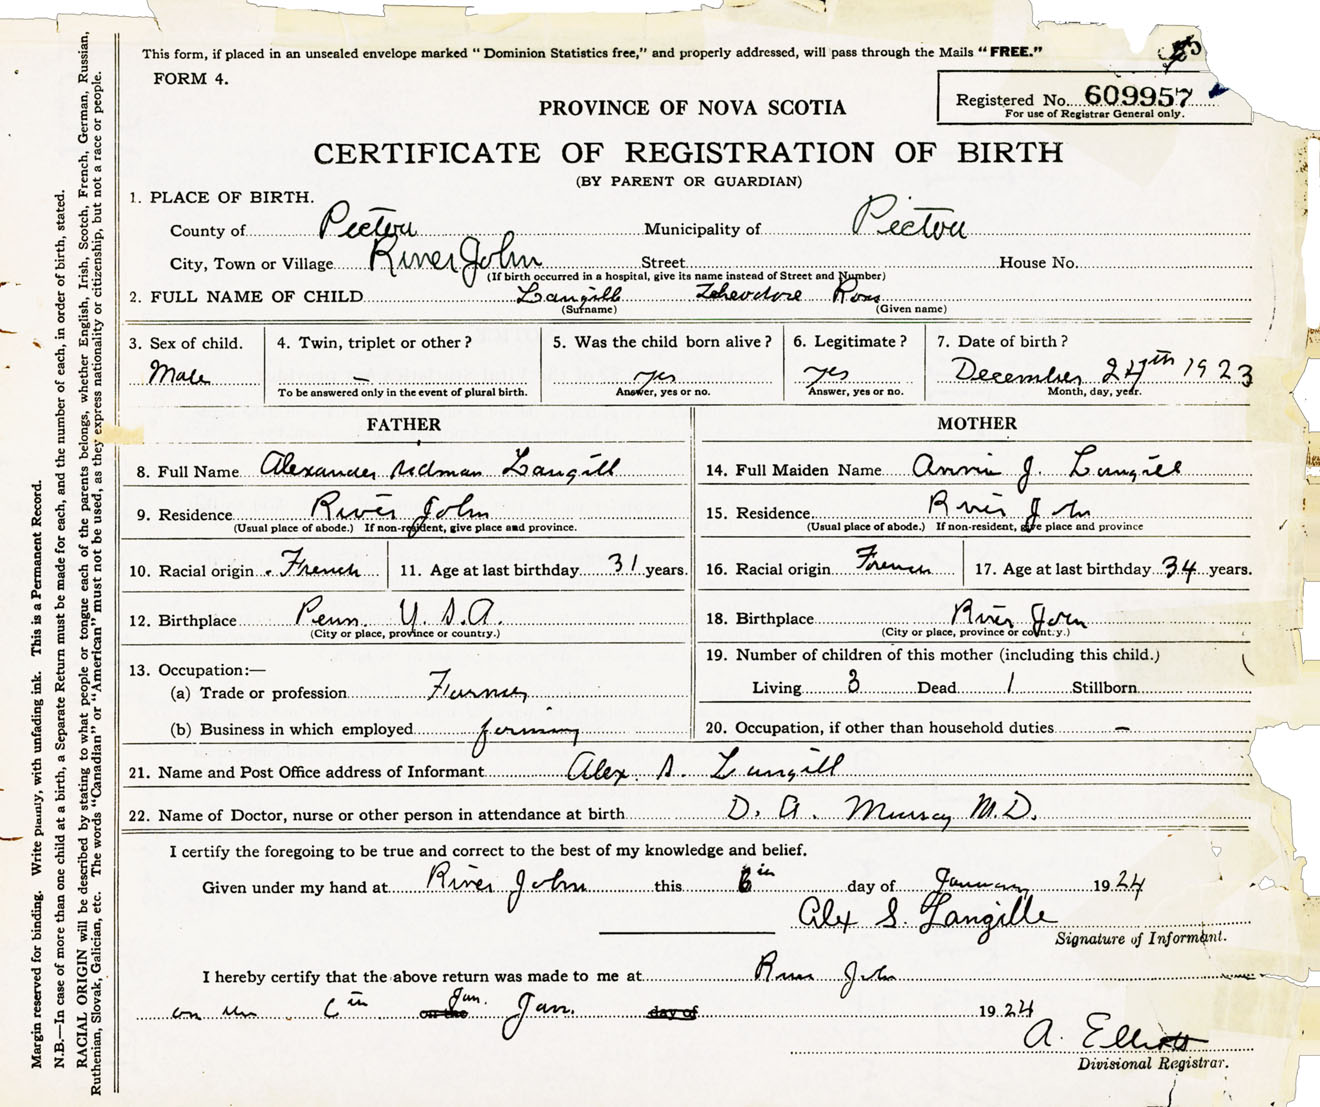 This form, if placed in an unsealed envelope marked "Dominion Statistics free," and properly addressed, will pass through the Mails "FREE."
FORM 4.
Registered No. 609957
For use of Registrar General only.
PROVINCE OF NOVA SCOTIA
CERTIFICATE OF REGISTRATION OF BIRTH
(BY PARENT OR GUARDIAN)
1. PLACE OF BIRTH.
County of Pictou Municipality of Pictou
City, Town or Village River John Street House No.
(If birth occurred in a hospital, give its name instead of Street and Number)
2. FULL NAME OF CHILD Langill Theodore Ross
(Surname) (Given name)
3. Sex of child. 4. Twin, triplet or other? 5. Was the child born alive? 6. Legitimate? 7. Date of birth?
Male — yes yes December 27th 1923
To be answered only in the event of plural birth. Answer, yes or no. Answer, yes or no. Month, day, year.
FATHER MOTHER
8. Full Name Alexander Langill 14. Full Maiden Name Annie J. Langill
9. Residence River John 15. Residence River John
(Usual place of abode.) If non-resident, give place and province. (Usual place of abode.) If non-resident, give place and province
10. Racial origin French 11. Age at last birthday 31 years. 16. Racial origin French 17. Age at last birthday 34 years.
12. Birthplace Penn. U.S.A. 18. Birthplace River John
(City or place, province or country.) (City or place, province or count.y.)
13. Occupation:— 19. Number of children of this mother (including this child.)
(a) Trade or profession Farmer Living 3 Dead 1 Stillborn
(b) Business in which employed farming 20. Occupation, if other than household duties —
21. Name and Post Office address of Informant Alex. S. Langill
22. Name of Doctor, nurse or other person in attendance at birth D. A. Murray M.D.
I certify the foregoing to be true and correct to the best of my knowledge and belief.
Given under my hand at River John this 6th day of January 1924
Alex S. Langille
Signature of Informant.
I hereby certify that the above return was made to me at River John
on the 6th on the Jan. Jan. day of 1924
A. Elliott
Divisional Registrar.
Margin reserved for binding. Write plainly, with unfading ink. This is a Permanent Record.
N.B.—In case of more than one child at a birth, a Separate Return must be made for each, and the number of each, in order of birth, stated.
RACIAL ORIGIN will be described by stating to what people or tongue each of the parents belongs, whether English, Irish, Scotch, French, German, Russian,
Ruthenian, Slovak, Galician, etc. The words "Canadian" or "American" must not be used, as they express nationality or citizenship, but not a race or people.